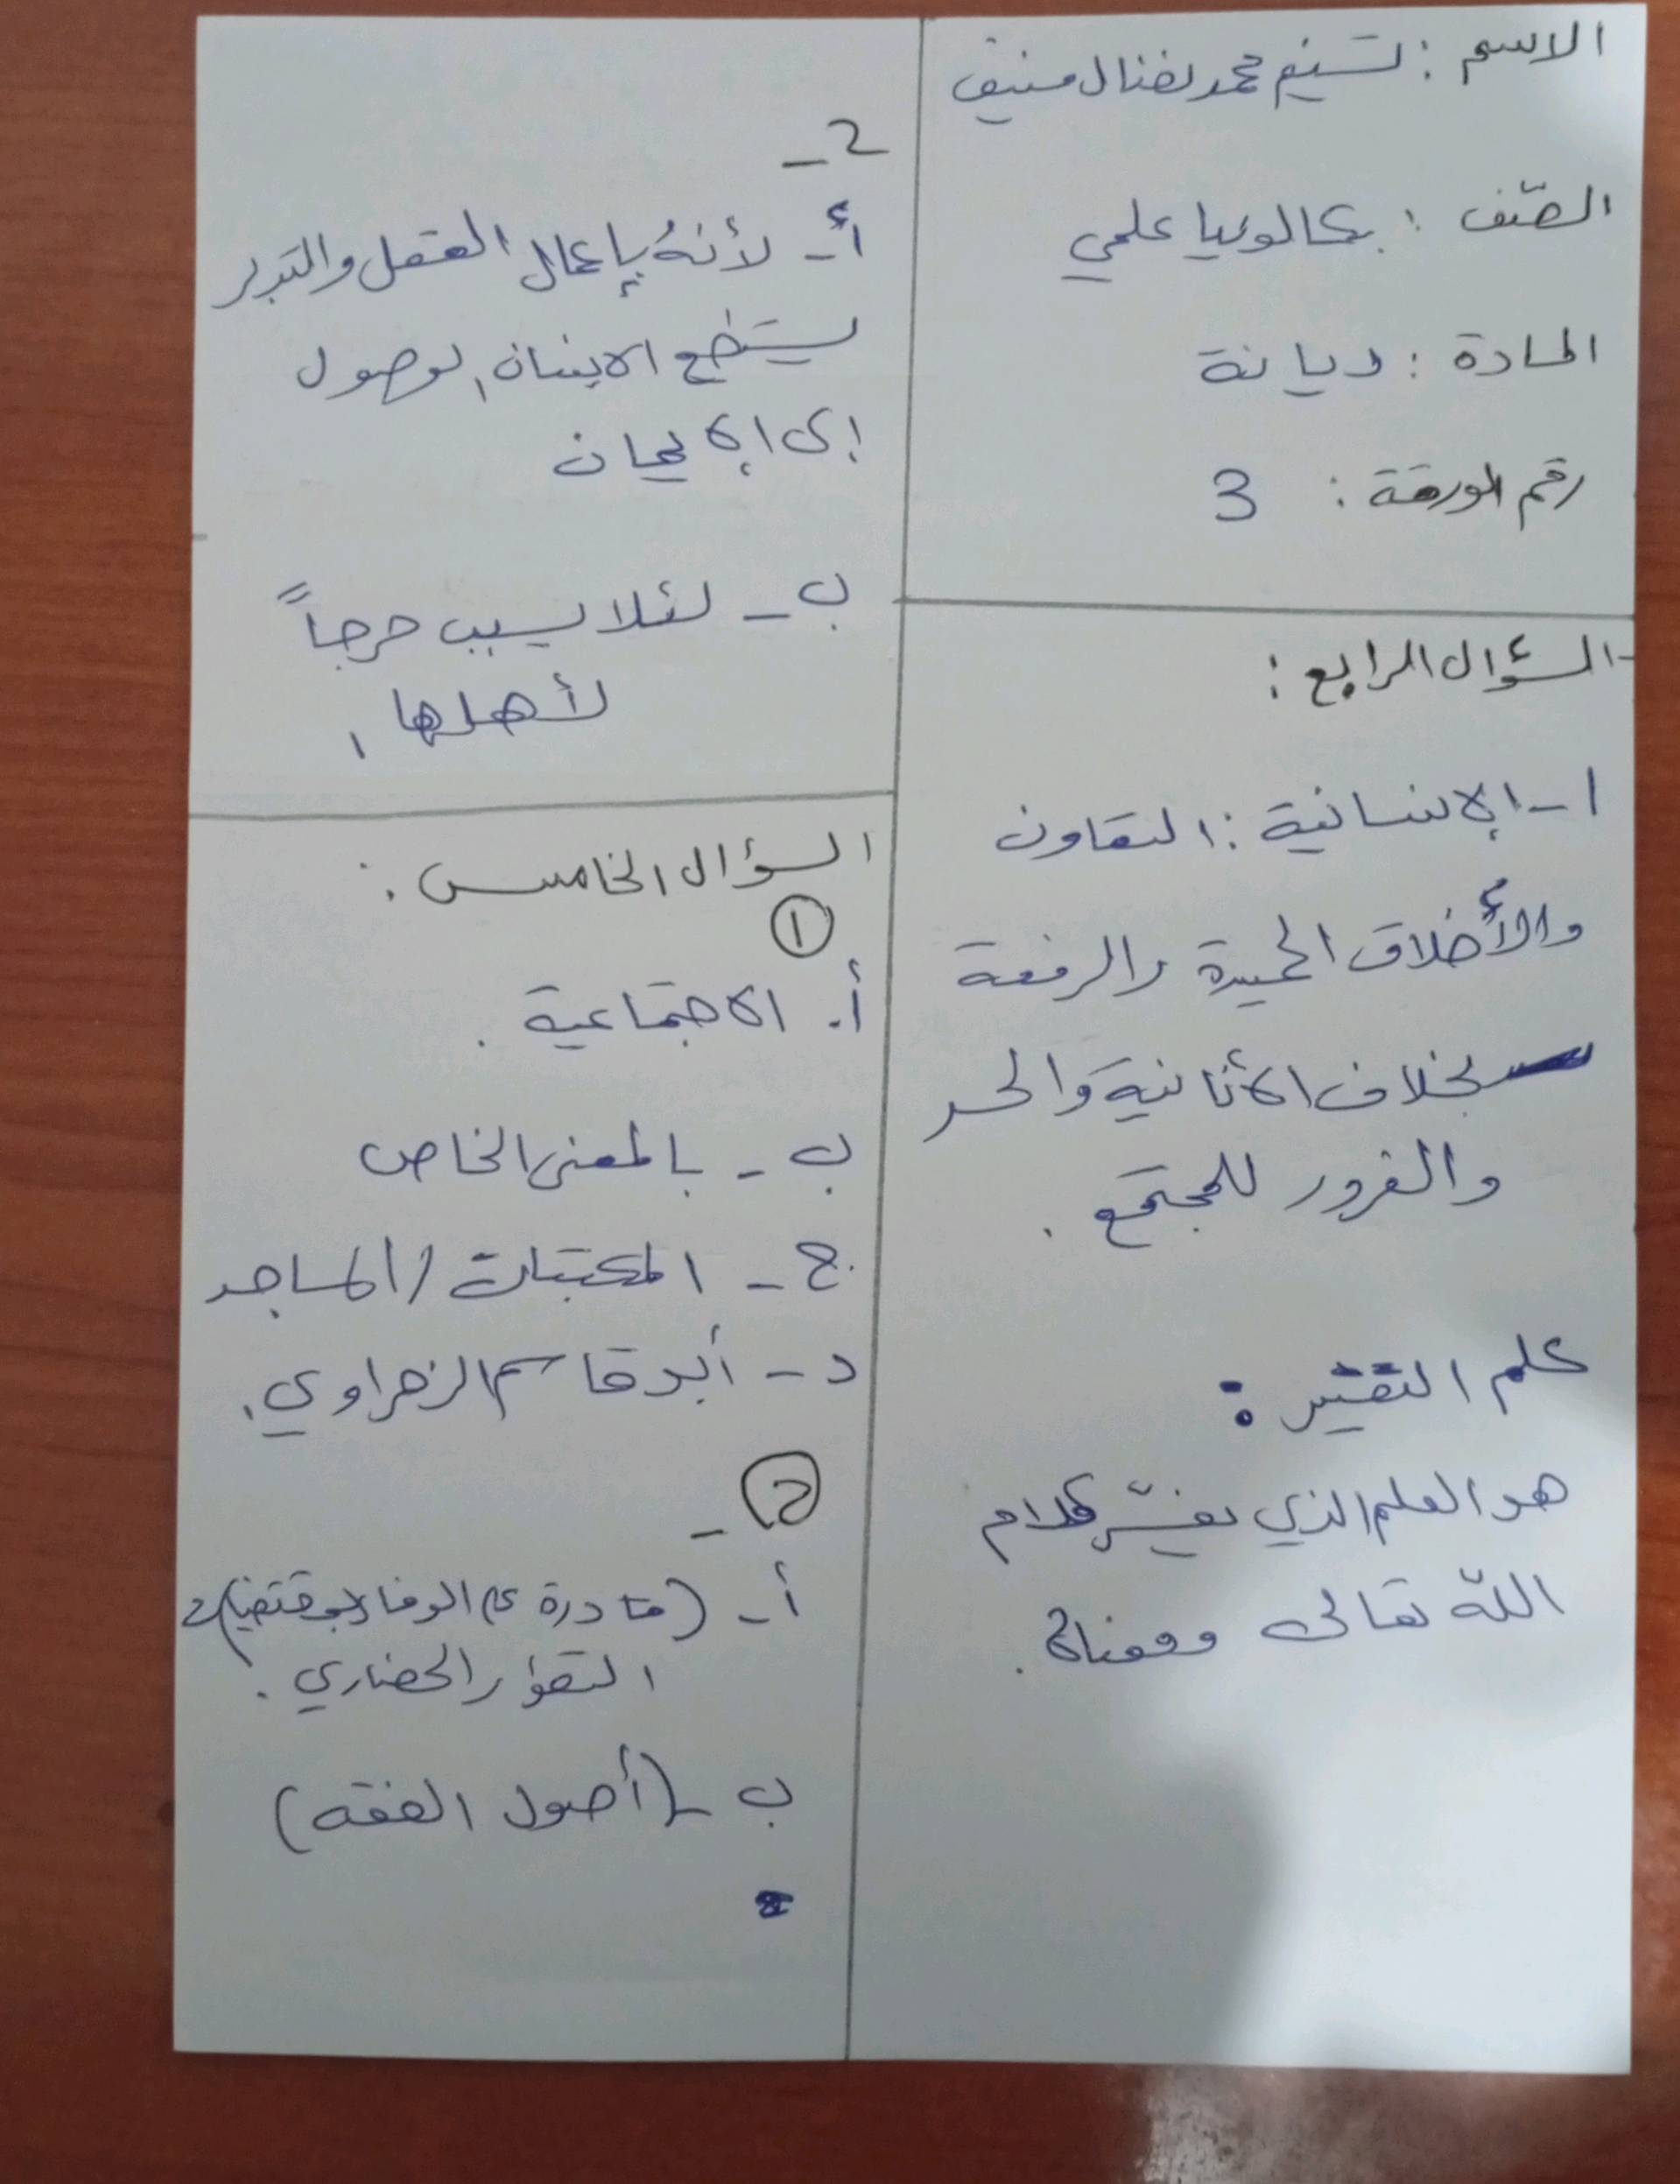 الاسم : تسنيم محمد نضال منيف
الصّف : بكالوريا علمي
المادة : ديانة
رقم الورقة : 3
السؤال الرابع :
١- الإنسانية : التعاون
والأخلاق الحميدة والرفعة
بخلاف الأنانية والحسد
والغرور للمجتمع .
علم التفسير :
هو العلم الذي يفسّر كلام
الله تعالى ومعناه .
2 -
أ - لأنهُ بإعمال العقل والتدبر
يستطيع الانسان الوصول
إلى الإيمان
ب - لئلا يسبب حرجاً
لأهلها .
السؤال الخامس :
①
أ. الاجتماعية .
ب - بالمعنى الخاص
ج - المكتبات / المساجد
د - أبو قاسم الزهراوي .
② -
أ - ( قادرة على الوفاء بمقتضيات )
التطور الحضاري .
ب - ( أصول الفقه )